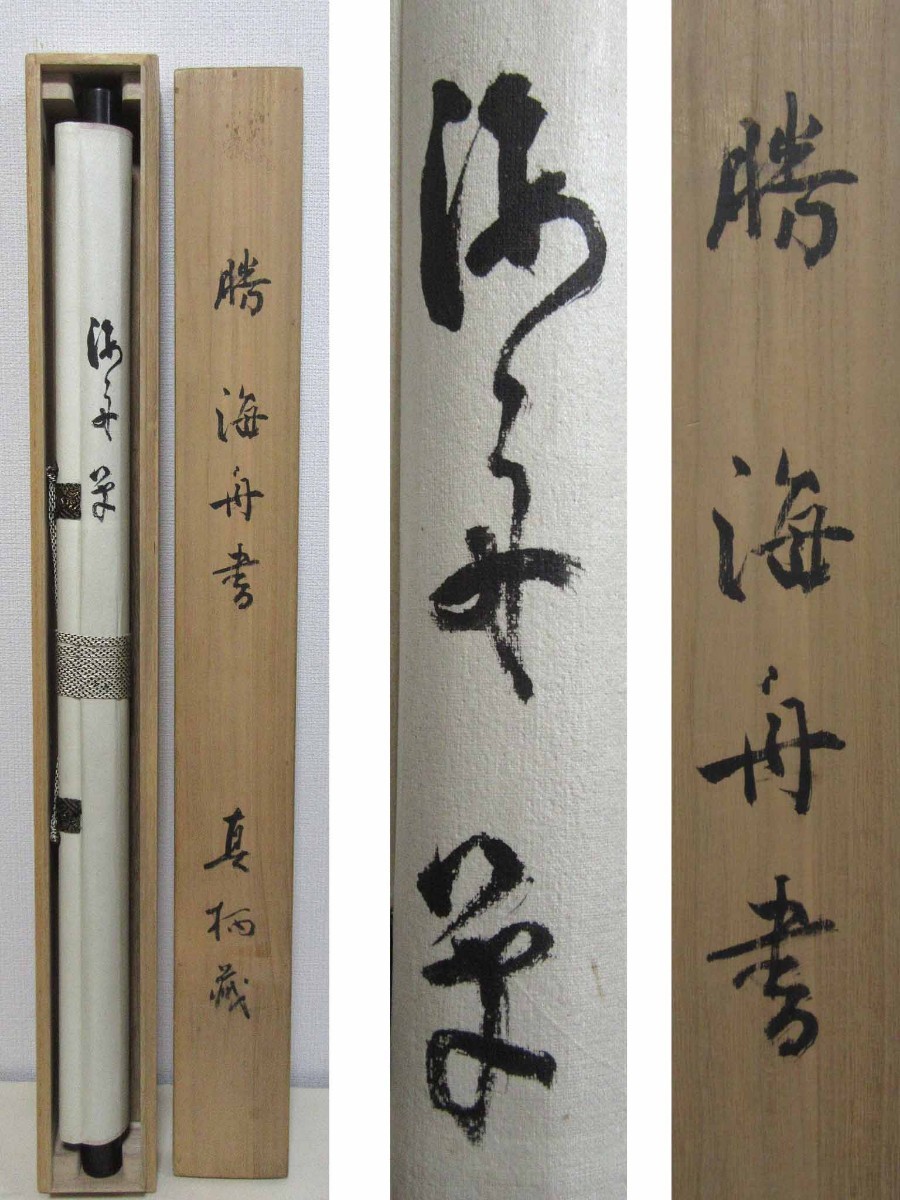 海舟 筆
勝 海舟書 真柄蔵
海舟 筆
勝海舟書